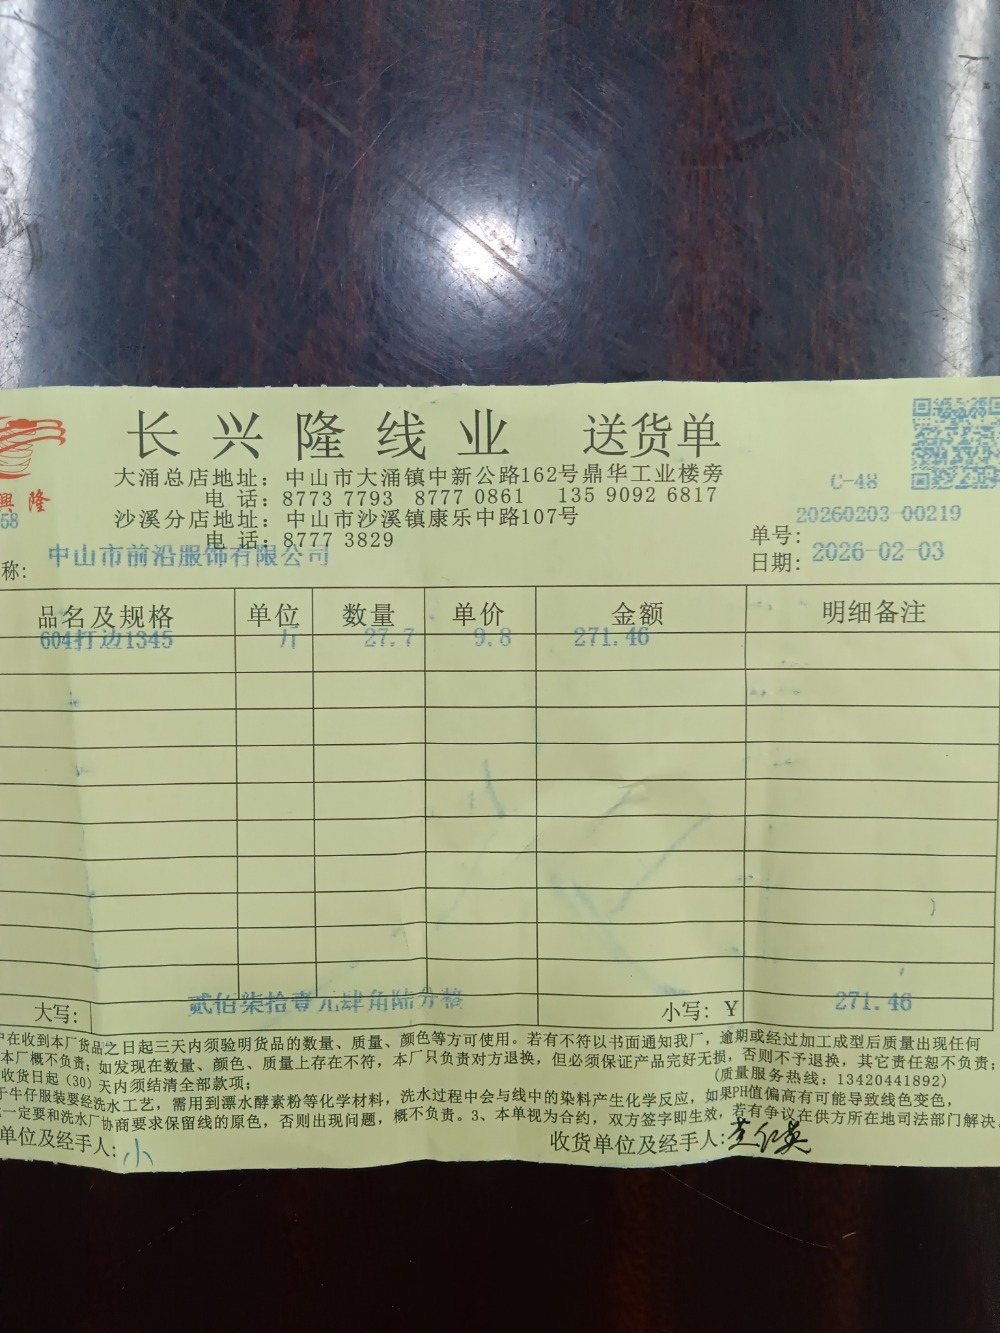 長興隆线业 送货单
興 隆
大涌总店地址：中山市大涌镇中新公路162号鼎华工业楼旁
C-48
电 话：8773 7793 8777 0861 135 9092 6817
68
20260203-00219
沙溪分店地址：中山市沙溪镇康乐中路107号
单号：
电 话：8777 3829
称：中山市前沿服饰有限公司
日期：2026-02-03
品名及规格 单位 数量 单价 金额 明细备注
604打边1345 斤 27.7 9.8 271.46
大写：贰佰柒拾壹元肆角陆分整 小写：¥ 271.46
在收到本厂货品之日起三天内须验明货品的数量、质量、颜色等方可使用。若有不符以书面通知我厂，逾期或经过加工成型后质量出现任何
本厂概不负责；如发现在数量、颜色、质量上存在不符，本厂只负责对方退换，但必须保证产品完好无损，否则不予退换，其它责任恕不负责；
收货日起（30）天内须结清全部款项；
(质量服务热线：13420441892)
于牛仔服装要经洗水工艺，需用到漂水酵素粉等化学材料，洗水过程中会与线中的染料产生化学反应，如果PH值偏高有可能导致线色变色，
一定要和洗水厂协商要求保留线的原色，否则出现问题，概不负责。3、本单视为合约，双方签字即生效，若有争议在供方所在地司法部门解决。
单位及经手人：小
收货单位及经手人：